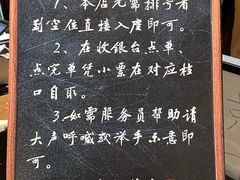 1、本店无需排号看
到空位直接入座即可。
2、在收银台点单、
点完单凭小票在对应档
口自取。
3、如需服务员帮助请
大声呼喊或举手示意即
可。